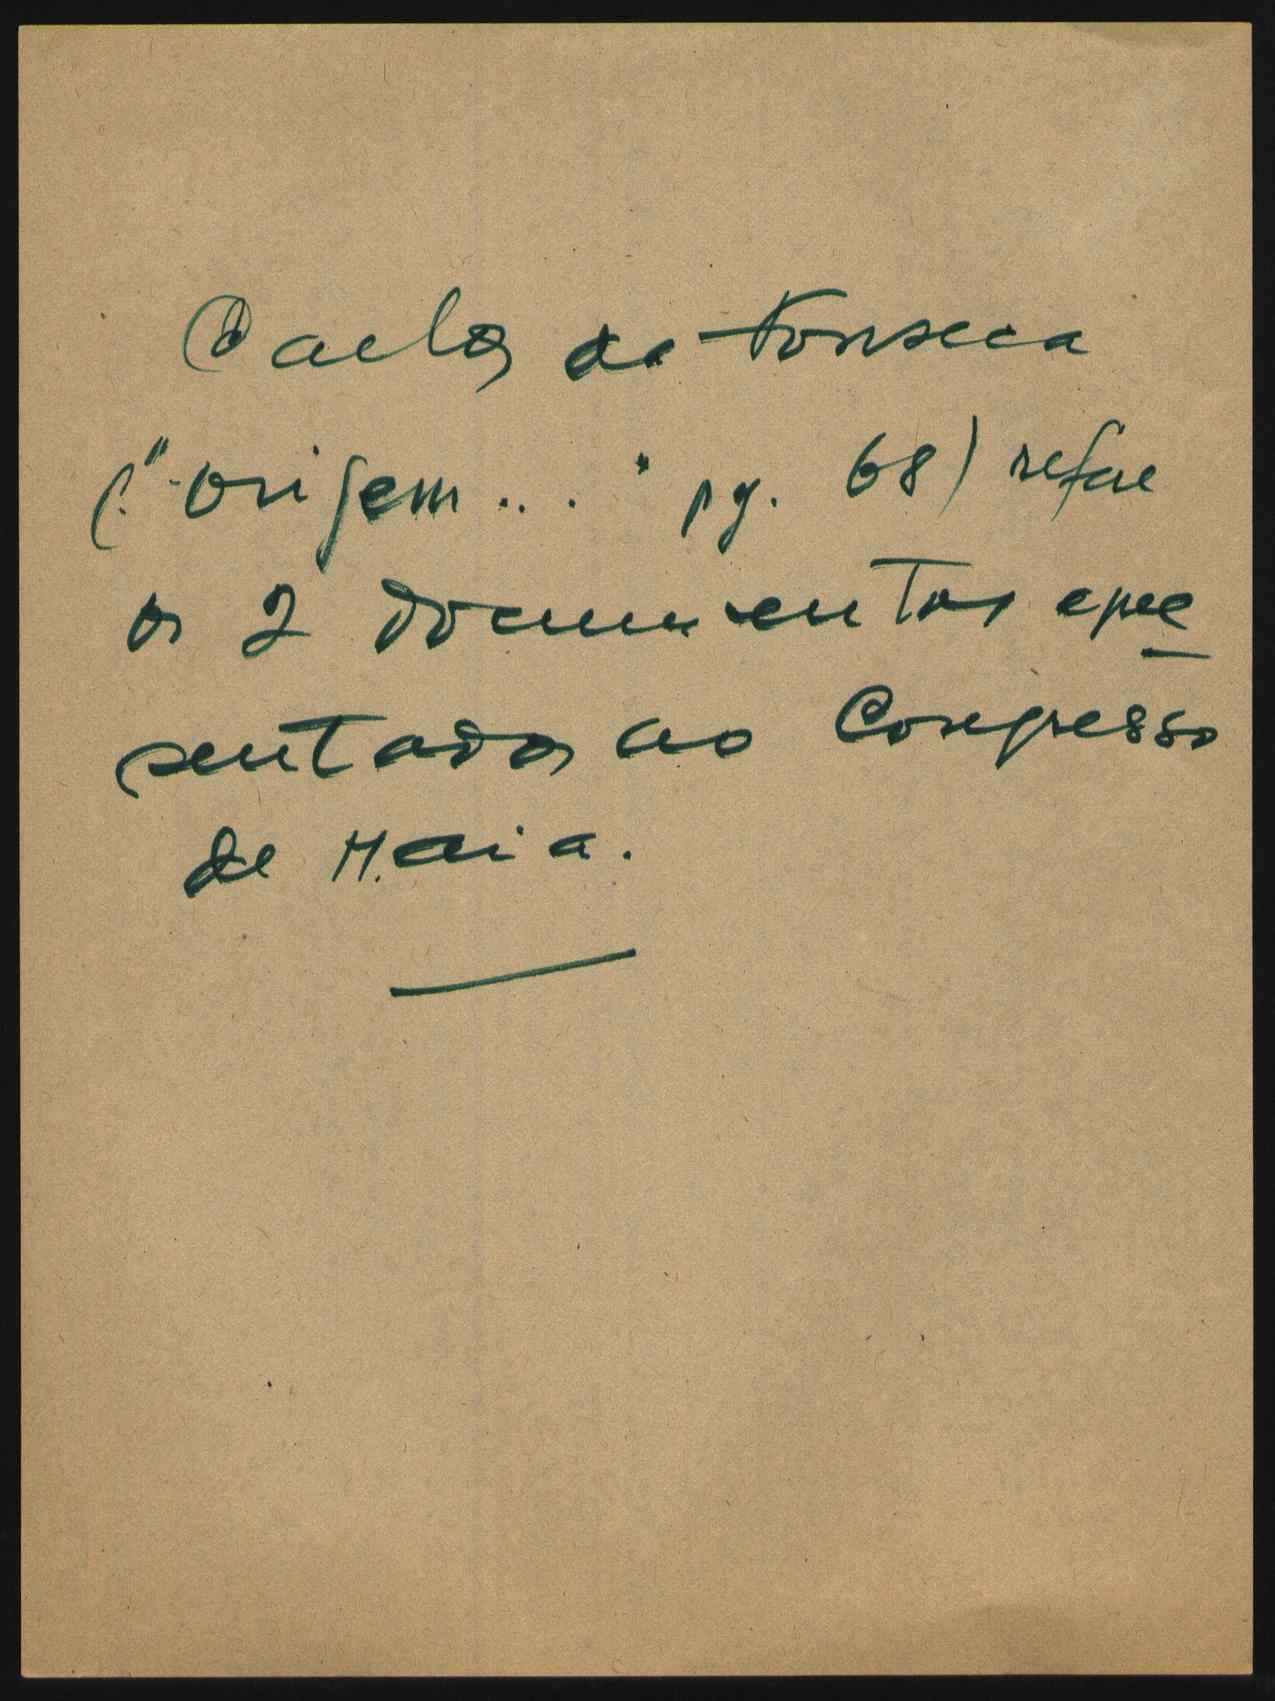 Carlos da Fonseca
("Origem..." pg. 68) refere
os 2 documentos apre
sentados ao Congresso
de Haia.